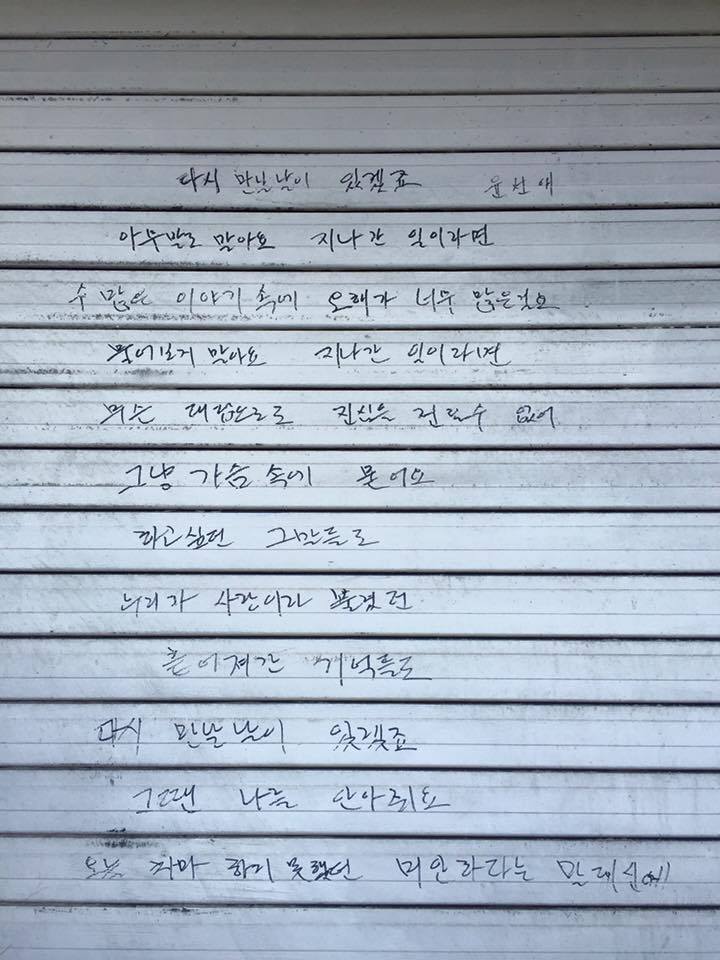 다시 만날날이 있겠죠 윤선애
아무말도 말아요 지나간 일이라면
수 많은 이야기 속에 오해가 너무 많은걸요
물어보지 말아요 지나간 일이라면
무슨 대답으로도 진심을 전할수 없어
그냥 가슴속에 묻어요
하고싶던 그말들도
우리가 사랑이라 불렀던
흩어져간 기억들도
다시 만날날이 있겠죠
그땐 나를 안아줘요
오늘 차마 하지 못했던 미안하다는 말대신에